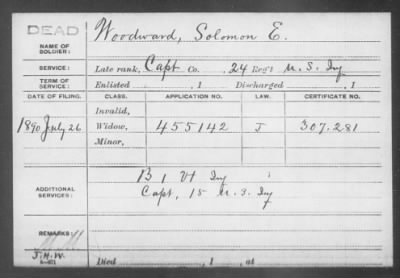 DEAD
NAME OF SOLDIER: Woodward, Solomon E.
SERVICE: Late rank, Capt Co. , 24 Reg't U. S. Inf
TERM OF SERVICE: Enlisted , 1 Discharged , 1
DATE OF FILING. CLASS. APPLICATION NO. LAW. CERTIFICATE NO.
Invalid,
1890 July 26 Widow, 455142 J 307.281
Minor,
ADDITIONAL SERVICES: B 1 Vt Inf
Capt, 15 U. S. Inf
REMARKS:
J.H.W.
Died , 1 , at